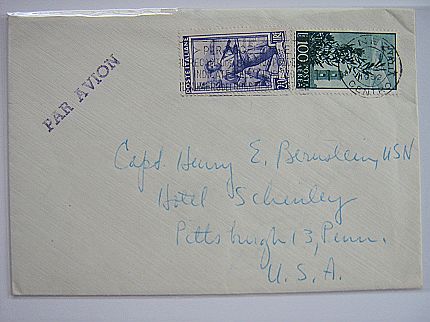 PAR AVION
POSTE ITALIANE
100
CENTRO
Capt. Henry E. Bernstein, USN
Hotel Schenley
Pittsburgh 13, Penn.
U.S.A.